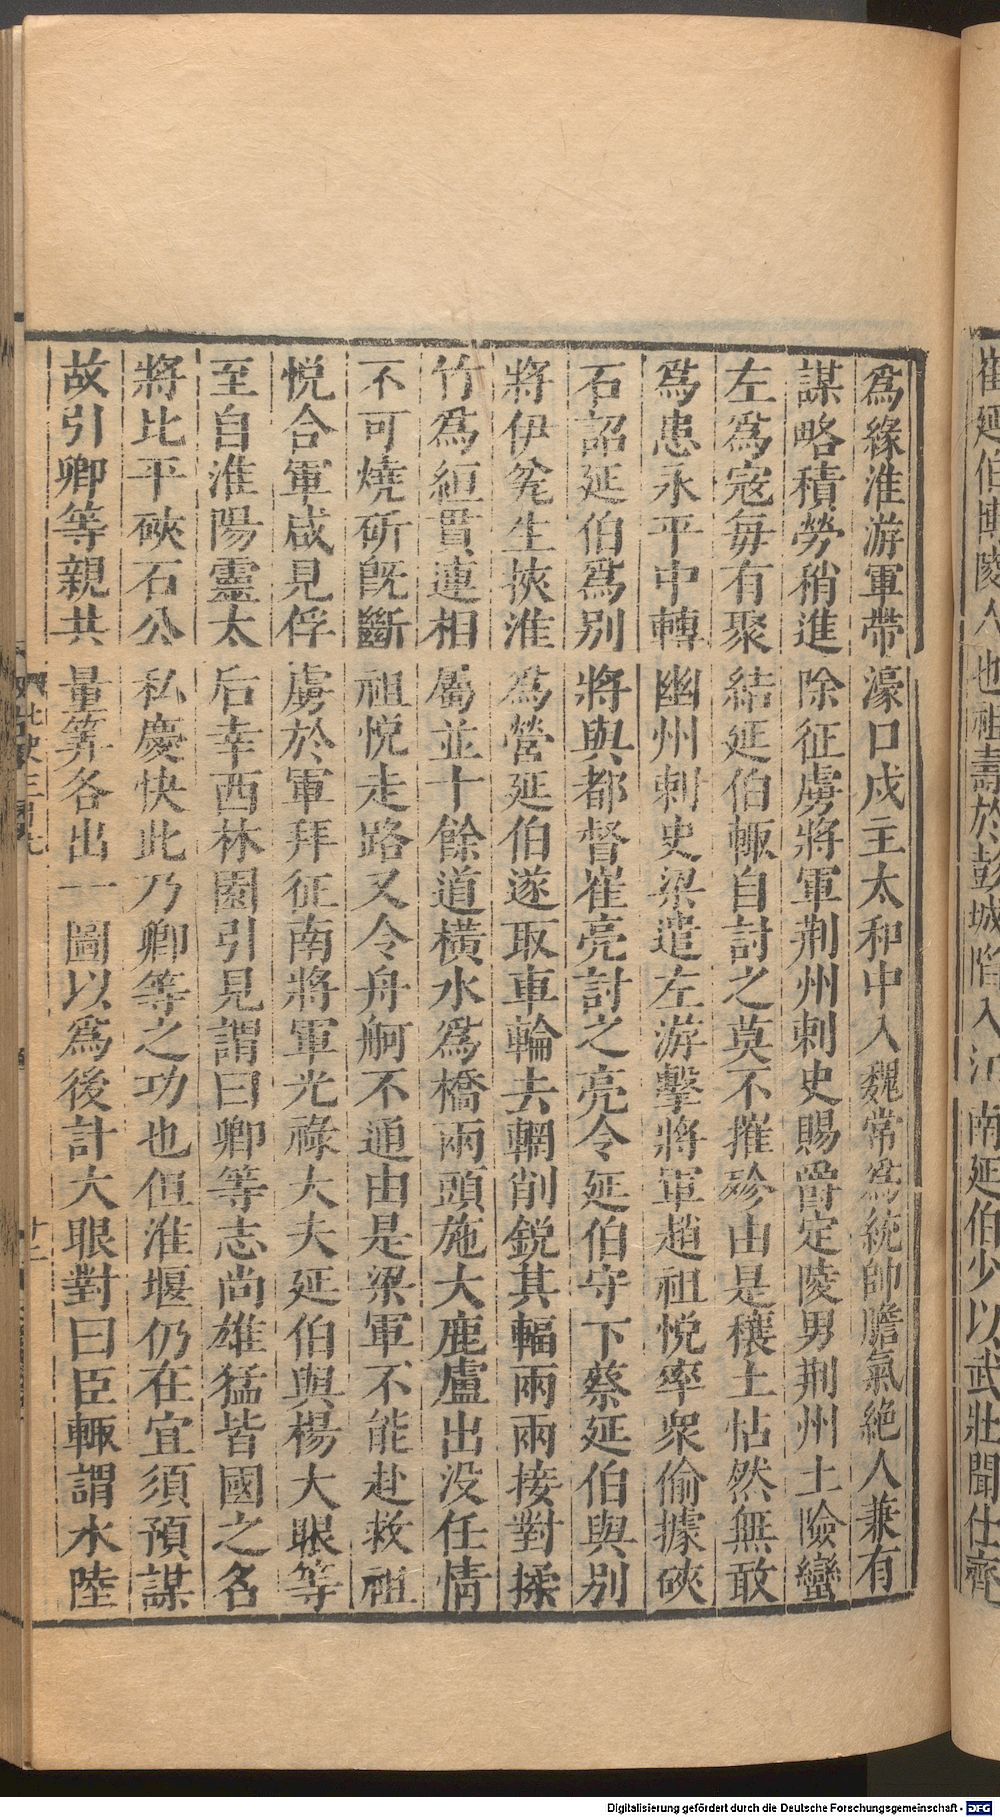 崔延伯博陵人也祖壽於彭城陷入江南延伯少以武壯聞仕齊
爲緣淮游軍帶濠口戍主太和中入魏常爲統帥膽氣絶人兼有
謀略積勞稍進除征虜將軍荆州刺史賜爵定陵男荆州土險蠻
左爲寇每有聚結延伯輙自討之莫不摧殄由是穰土怗然無敢
爲患永平中轉幽州刺史梁遣左游擊將軍趙祖悦率衆偷據硤
石詔延伯爲别將與都督崔亮討之亮令延伯守下蔡延伯與别
將伊瓫生挾淮爲營延伯遂取車輪去輞削鋭其輻兩兩接對揉
竹爲絙貫連相屬並十餘道横水爲橋兩頭施大鹿盧出没任情
不可燒斫旣斷祖悦走路又令舟舸不通由是梁軍不能赴救祖
悦合軍咸見俘虜於軍拜征南將軍光祿大夫延伯與楊大眼等
至自淮陽靈太后幸西林園引見謂曰卿等志尚雄猛皆國之名
將比平硤石公私慶快此乃卿等之功也但淮堰仍在宜須預謀
故引卿等親共量筭各出一圖以爲後計大眼對曰臣輙謂水陸
Digitalisierung gefördert durch die Deutsche Forschungsgemeinschaft - DFG